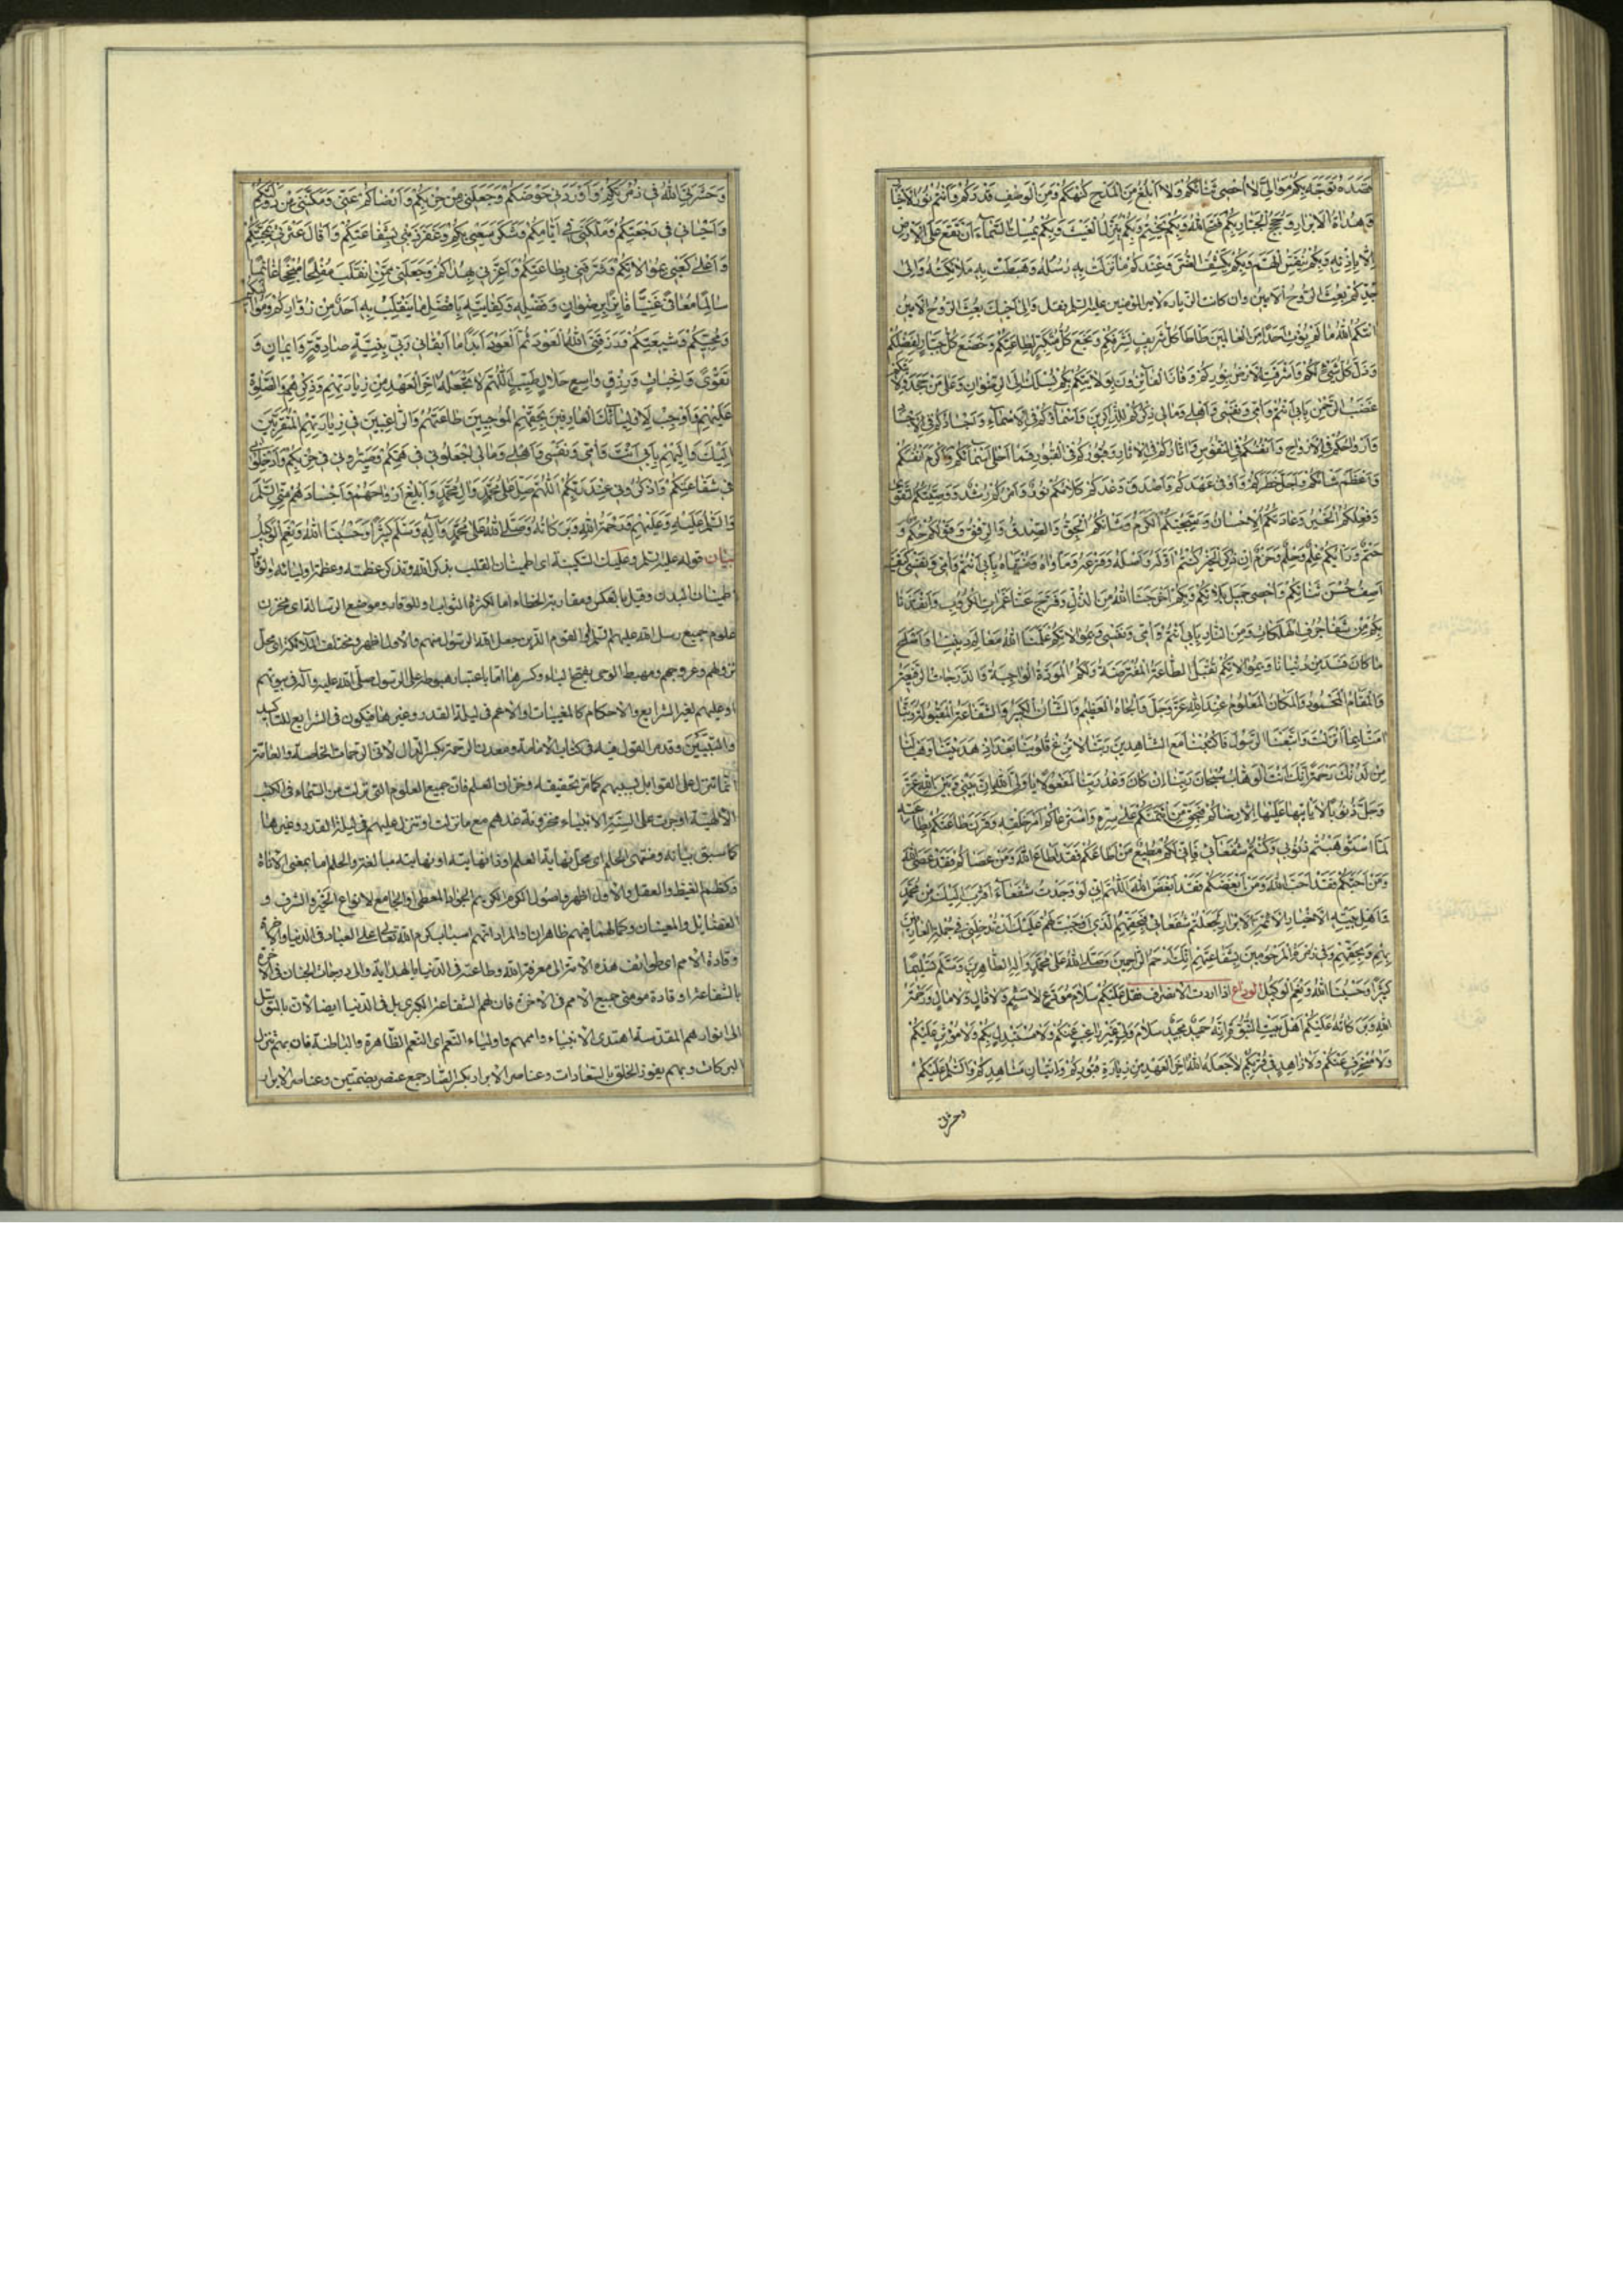 قَصَدَهُ تَوَجَّهَ بِكُمْ مَوَالِيَّ لَا أُحْصِي ثَنَائَكُمْ وَلَا أَبْلُغُ مِنَ الْمَدْحِ كُنْهَكُمْ وَمِنَ الْوَصْفِ قَدْرَكُمْ وَأَنْتُمْ نُورُ الْأَخْيَارِ
وَهُدَاةُ الْأَبْرَارِ وَحُجَجُ الْجَبَّارِ بِكُمْ فَتَحَ اللَّهُ وَبِكُمْ يَخْتِمُ وَبِكُمْ يُنَزِّلُ الْغَيْثَ وَبِكُمْ يُمْسِكُ السَّمَاءَ أَنْ تَقَعَ عَلَى الْأَرْضِ
إِلَّا بِإِذْنِهِ وَبِكُمْ يُنَفِّسُ الْهَمَّ وَبِكُمْ يَكْشِفُ الضُّرَّ وَعِنْدَكُمْ مَا نَزَلَتْ بِهِ رُسُلُهُ وَهَبَطَتْ بِهِ مَلَائِكَتُهُ وَإِلَى
جَدِّكُمْ بُعِثَ الرُّوحُ الْأَمِينُ وان كانت الزيارة لامير المؤمنين عليه السلم فقل وَإِلَى أَخِيكَ بُعِثَ الرُّوحُ الْأَمِينُ
آتَاكُمُ اللَّهُ مَا لَمْ يُؤْتِ أَحَدًا مِنَ الْعَالَمِينَ طَأْطَأَ كُلُّ شَرِيفٍ لِشَرَفِكُمْ وَبَخَعَ كُلُّ مُتَكَبِّرٍ لِطَاعَتِكُمْ وَخَضَعَ كُلُّ جَبَّارٍ لِفَضْلِكُمْ
وَذَلَّ كُلُّ شَيْءٍ لَكُمْ وَأَشْرَقَتِ الْأَرْضُ بِنُورِكُمْ وَفَازَ الْفَائِزُونَ بِوَلَايَتِكُمْ بِكُمْ يُسْلَكُ إِلَى الرِّضْوَانِ وَعَلَى مَنْ جَحَدَ وَلَايَتَكُمْ
غَضَبُ الرَّحْمٰنِ بِأَبِي أَنْتُمْ وَأُمِّي وَنَفْسِي وَأَهْلِي وَمَالِي ذِكْرُكُمْ فِي الذَّاكِرِينَ وَأَسْمَاؤُكُمْ فِي الْأَسْمَاءِ وَأَجْسَادُكُمْ فِي الْأَجْسَادِ
وَأَرْوَاحُكُمْ فِي الْأَرْوَاحِ وَأَنْفُسُكُمْ فِي النُّفُوسِ وَآثَارُكُمْ فِي الْآثَارِ وَقُبُورُكُمْ فِي الْقُبُورِ فَمَا أَحْلَى أَسْمَائَكُمْ وَأَكْرَمَ أَنْفُسَكُمْ
وَأَعْظَمَ شَأْنَكُمْ وَأَجَلَّ خَطَرَكُمْ وَأَوْفَى عَهْدَكُمْ وَأَصْدَقَ وَعْدَكُمْ كَلَامُكُمْ نُورٌ وَأَمْرُكُمْ رُشْدٌ وَوَصِيَّتُكُمُ التَّقْوَى
وَفِعْلُكُمُ الْخَيْرُ وَعَادَتُكُمُ الْإِحْسَانُ وَسَجِيَّتُكُمُ الْكَرَمُ وَشَأْنُكُمُ الْحَقُّ وَالصِّدْقُ وَالرِّفْقُ وَقَوْلُكُمْ حُكْمٌ وَ
حَتْمٌ وَرَأْيُكُمْ عِلْمٌ وَحِلْمٌ وَحَزْمٌ إِنْ ذُكِرَ الْخَيْرُ كُنْتُمْ أَوَّلَهُ وَأَصْلَهُ وَفَرْعَهُ وَمَأْوَاهُ وَمُنْتَهَاهُ بِأَبِي أَنْتُمْ وَأُمِّي وَنَفْسِي كَيْفَ
أَصِفُ حُسْنَ ثَنَائِكُمْ وَأُحْصِي جَمِيلَ بَلَائِكُمْ وَبِكُمْ أَخْرَجَنَا اللَّهُ مِنَ الذُّلِّ وَفَرَّجَ عَنَّا غَمَرَاتِ الْكُرُوبِ وَأَنْقَذَنَا
بِكُمْ مِنْ شَفَا جُرُفِ الْهَلَكَاتِ وَمِنَ النَّارِ بِأَبِي أَنْتُمْ وَأُمِّي وَنَفْسِي بِمُوَالَاتِكُمْ عَلَّمَنَا اللَّهُ مَعَالِمَ دِينِنَا وَأَصْلَحَ
مَا كَانَ فَسَدَ مِنْ دُنْيَانَا وَبِمُوَالَاتِكُمْ تُقْبَلُ الطَّاعَةُ الْمُفْتَرَضَةُ وَلَكُمُ الْمَوَدَّةُ الْوَاجِبَةُ وَالدَّرَجَاتُ الرَّفِيعَةُ
وَالْمَقَامُ الْمَحْمُودُ وَالْمَكَانُ الْمَعْلُومُ عِنْدَ اللَّهِ عَزَّ وَجَلَّ وَالْجَاهُ الْعَظِيمُ وَالشَّأْنُ الْكَبِيرُ وَالشَّفَاعَةُ الْمَقْبُولَةُ رَبَّنَا
آمَنَّا بِمَا أَنْزَلْتَ وَاتَّبَعْنَا الرَّسُولَ فَاكْتُبْنَا مَعَ الشَّاهِدِينَ رَبَّنَا لَا تُزِغْ قُلُوبَنَا بَعْدَ إِذْ هَدَيْتَنَا وَهَبْ لَنَا
مِنْ لَدُنْكَ رَحْمَةً إِنَّكَ أَنْتَ الْوَهَّابُ سُبْحَانَ رَبِّنَا إِنْ كَانَ وَعْدُ رَبِّنَا لَمَفْعُولًا يَا وَلِيَّ اللَّهِ إِنَّ بَيْنِي وَبَيْنَ اللَّهِ عَزَّ
وَجَلَّ ذُنُوبًا لَا يَأْتِي عَلَيْهَا إِلَّا رِضَاكُمْ فَبِحَقِّ مَنِ ائْتَمَنَكُمْ عَلَى سِرِّهِ وَاسْتَرْعَاكُمْ أَمْرَ خَلْقِهِ وَقَرَنَ طَاعَتَكُمْ بِطَاعَتِهِ
لَمَّا اسْتَوْهَبْتُمْ ذُنُوبِي وَكُنْتُمْ شُفَعَائِي فَإِنِّي لَكُمْ مُطِيعٌ مَنْ أَطَاعَكُمْ فَقَدْ أَطَاعَ اللَّهَ وَمَنْ عَصَاكُمْ فَقَدْ عَصَى اللَّهَ
وَمَنْ أَحَبَّكُمْ فَقَدْ أَحَبَّ اللَّهَ وَمَنْ أَبْغَضَكُمْ فَقَدْ أَبْغَضَ اللَّهَ اللَّهُمَّ إِنِّي لَوْ وَجَدْتُ شُفَعَاءَ أَقْرَبَ إِلَيْكَ مِنْ مُحَمَّدٍ
وَأَهْلِ بَيْتِهِ الْأَخْيَارِ الْأَئِمَّةِ الْأَبْرَارِ لَجَعَلْتُهُمْ شُفَعَائِي فَبِحَقِّهِمُ الَّذِي أَوْجَبْتَ لَهُمْ عَلَيْكَ أَنْ تُدْخِلَنِي فِي جُمْلَةِ الْعَارِفِينَ
بِهِمْ وَبِحَقِّهِمْ وَفِي زُمْرَةِ الْمَرْحُومِينَ بِشَفَاعَتِهِمْ إِنَّكَ أَرْحَمُ الرَّاحِمِينَ وَصَلَّى اللَّهُ عَلَى مُحَمَّدٍ وَآلِهِ الطَّاهِرِينَ وَسَلَّمَ تَسْلِيمًا
كَثِيرًا وَحَسْبُنَا اللَّهُ وَنِعْمَ الْوَكِيلُ الوداع اذا اردت الانصراف فقل عَلَيْكُمْ سَلَامَ مُوَدِّعٍ لَا سَئِمٍ وَلَا قَالٍ وَلَا مَالٍّ وَرَحْمَةُ
اللَّهِ وَبَرَكَاتُهُ عَلَيْكُمْ أَهْلَ بَيْتِ النُّبُوَّةِ إِنَّهُ حَمِيدٌ مَجِيدٌ سَلَامَ وَلِيٍّ غَيْرِ رَاغِبٍ عَنْكُمْ وَلَا مُسْتَبْدِلٍ بِكُمْ وَلَا مُؤْثِرٍ عَلَيْكُمْ
وَلَا مُنْحَرِفٍ عَنْكُمْ وَلَا زَاهِدٍ فِي قُرْبِكُمْ لَا جَعَلَهُ اللَّهُ آخِرَ الْعَهْدِ مِنْ زِيَارَةِ قُبُورِكُمْ وَإِتْيَانِ مَشَاهِدِكُمْ وَالسَّلَامُ عَلَيْكُمْ
وحشرنی
وَحَشَرَنِيَ اللَّهُ فِي زُمْرَتِكُمْ وَأَوْرَدَنِي حَوْضَكُمْ وَجَعَلَنِي مِنْ حِزْبِكُمْ وَأَرْضَاكُمْ عَنِّي وَمَكَّنَنِي مِنْ دَوْلَتِكُمْ
وَأَحْيَانِي فِي رَجْعَتِكُمْ وَمَلَّكَنِي فِي أَيَّامِكُمْ وَشَكَرَ سَعْيِي بِكُمْ وَغَفَرَ ذَنْبِي بِشَفَاعَتِكُمْ وَأَقَالَ عَثْرَتِي بِمَحَبَّتِكُمْ
وَأَعْلَى كَعْبِي بِمُوَالَاتِكُمْ وَشَرَّفَنِي بِطَاعَتِكُمْ وَأَعَزَّنِي بِهُدَاكُمْ وَجَعَلَنِي مِمَّنِ انْقَلَبَ مُفْلِحًا مُنْجِحًا غَانِمًا
سَالِمًا مُعَافًى غَنِيًّا فَائِزًا بِرِضْوَانِ وَفَضْلِهِ وَكِفَايَتِهِ بِأَفْضَلِ مَا يَنْقَلِبُ بِهِ أَحَدٌ مِنْ زُوَّارِكُمْ وَمَوَالِيكُمْ
وَمُحِبِّيكُمْ وَشِيعَتِكُمْ وَرَزَقَنِيَ اللَّهُ الْعَوْدَ ثُمَّ الْعَوْدَ أَبَدًا مَا أَبْقَانِي رَبِّي بِنِيَّةٍ صَادِقَةٍ وَإِيمَانٍ وَ
تَقْوًى وَإِخْبَاتٍ وَرِزْقٍ وَاسِعٍ حَلَالٍ طَيِّبٍ اللَّهُمَّ لَا تَجْعَلْهُ آخِرَ الْعَهْدِ مِنْ زِيَارَتِهِمْ وَذِكْرِهِمْ وَالصَّلٰوةِ
عَلَيْهِمْ وَأَوْجِبْ لِي لِأَوْلِيَائِكَ الْعَارِفِينَ بِحَقِّهِمُ الْمُوجِبِينَ طَاعَتَهُمْ وَالرَّاغِبِينَ فِي زِيَارَتِهِمُ الْمُتَقَرِّبِينَ
إِلَيْكَ وَإِلَيْهِمْ بِأَبِي أَنْتَ وَأُمِّي وَنَفْسِي وَأَهْلِي وَمَالِي اجْعَلُونِي فِي هَمِّكُمْ وَصَيِّرُونِي فِي حِزْبِكُمْ وَأَدْخِلُونِي
فِي شَفَاعَتِكُمْ وَاذْكُرُونِي عِنْدَ رَبِّكُمْ اللَّهُمَّ صَلِّ عَلَى مُحَمَّدٍ وَآلِ مُحَمَّدٍ وَأَبْلِغْ أَرْوَاحَهُمْ وَأَجْسَادَهُمْ مِنِّي السَّلَامَ
وَالسَّلَامُ عَلَيْهِ وَعَلَيْهِمْ وَرَحْمَةُ اللَّهِ وَبَرَكَاتُهُ وَصَلَّى اللَّهُ عَلَى مُحَمَّدٍ وَآلِهِ وَسَلَّمَ كَثِيرًا وَحَسْبُنَا اللَّهُ وَنِعْمَ الْوَكِيلُ
بيان قوله عليه السلم وعليك السكينة اى اطمينان القلب بذكر الله وتذكر عظمته وعظمة اوليائه والوقار
اطمينان البدن وقيل بالعكس ومقاربة الخطاء اما لكثرة الثواب او للوقار وموضع الرسالة اى مخزن
علوم جميع رسل الله عليهم السلم او القوم الذين جعل الله الرسول منهم والاول اظهر ومختلف الملائكة اى محل
نزولهم وعروجهم ومهبط الوحى بفتح الباء وكسرها اما باعتبار هبوطه على الرسول صلى الله عليه وآله فى بيوتهم
او عليهم لغير الشرايع والاحكام كالمغيبات او الاعم فى ليلة القدر وغيرها فيكون فى الشرايع للتاكيد
والتبيين وقد مر القول فيه فى كتاب الامامة ومعدن الرحمة بكسر الدال لان الرحمات الخاصة والعامة
انما تنزل على القوابل بسببهم كما مر تحقيقه وخزان العلم فان جميع العلوم التى نزلت من السماء فى الكتب
الالهية او جرت على السنة الانبياء مخزونة عندهم مع ما نزلت او تنزل عليهم فى ليلة القدر وغيرها
كما سبق بيانه ومنتهى الحلم اى محل نهاية الحلم او ذا نهايته او نهايته مبالغة والحلم اما بمعنى الاناة
وكظم الغيظ او العقل والاول اظهر واصول الكرم الكريم الجواد المعطى او الجامع لانواع الخير والشرف و
الفضايل والمعنيان وكمالهما فيهم ظاهران والمراد انهم اسباب كرم الله تعالى على العباد فى الدنيا والاخرة
وقادة الامم اى طوائف هذه الامة الى معرفة الله وطاعته فى الدنيا بالهداية والى درجات الجنان فى الاخرة
بالشفاعة او قادة مؤمنى جميع الامم فى الاخرة فان لهم الشفاعة الكبرى بل فى الدنيا ايضا لان بالتوسل
الى انوارهم المقدسة اهتدى الانبياء واممهم واولياء النعم اى النعم الظاهرة والباطنة فان بهم تنزل
البركات وبهم يفوز الخلق بالسعادات وعناصر الابرار بكسر الصاد جمع عنصر بضمتين وعناصر الابرار